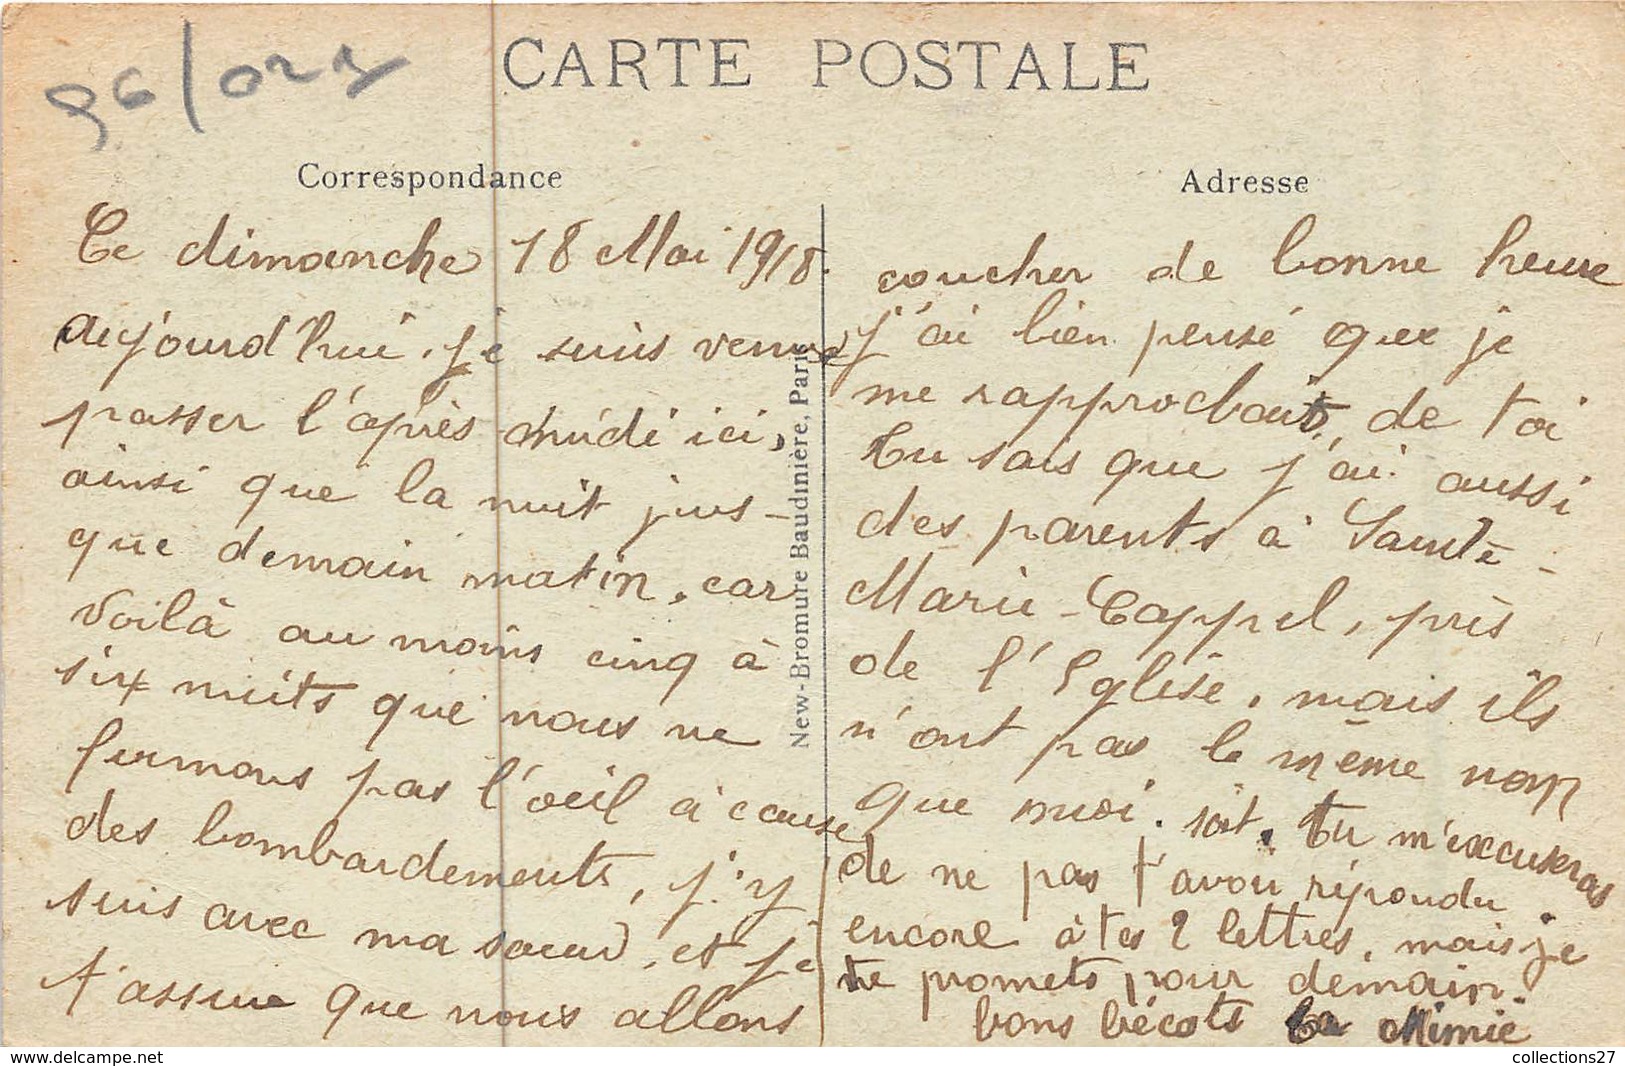 96/021
CARTE POSTALE
Correspondance
Ce dimanche 18 Mai 1918.
aujourd'hui, je suis venue
passer l'après-midi ici,
ainsi que la nuit jus-
que demain matin, car
voilà au moins cinq à
six nuits que nous ne
fermons pas l'oeil à cause
des bombardements, j'y
suis avec ma soeur, et je
t'assure que nous allons
New-Bromure Baudinière, Paris
Adresse
coucher de bonne heure
j'ai bien pensé que je
me rapprochais, de toi
tu sais que j'ai aussi
des parents à Sainte-
Marie-Cappel, près
de l'Eglise, mais ils
n'ont pas le même nom
que moi. soit. tu m'excuseras
de ne pas t'avoir répondu
encore à tes 2 lettres, mais je
te promets pour demain.
bons bécots ta Mimie
www.delcampe.net
collections27